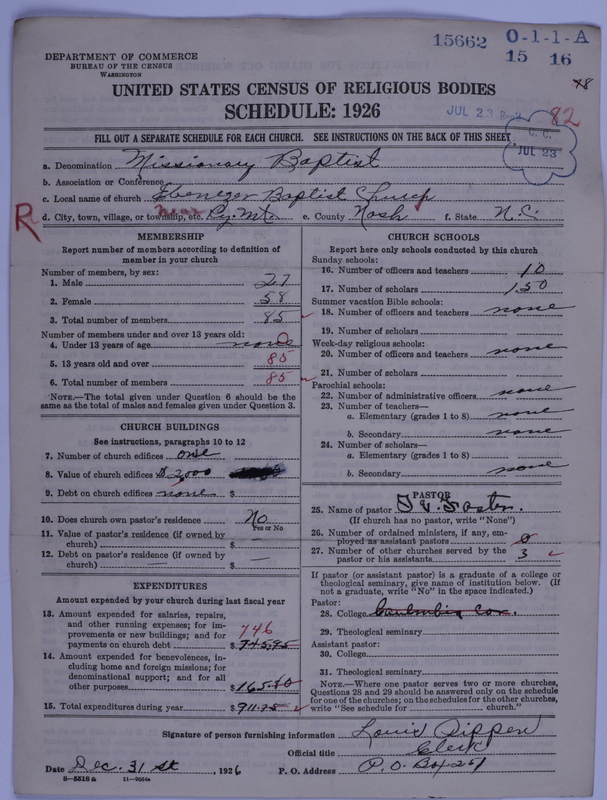 15662 0-1-1-A
15 16
DEPARTMENT OF COMMERCE
BUREAU OF THE CENSUS
WASHINGTON
UNITED STATES CENSUS OF RELIGIOUS BODIES
SCHEDULE: 1926
JUL 23 82
FILL OUT A SEPARATE SCHEDULE FOR EACH CHURCH. SEE INSTRUCTIONS ON THE BACK OF THIS SHEET
C. C.
JUL 23
a. Denomination Missionary Baptist
b. Association or Conference
c. Local name of church Ebenezer Baptist Church
d. City, town, village, or township, etc. near Ry. Mt. e. County Nash f. State N.C.
R
MEMBERSHIP
Report number of members according to definition of
member in your church
Number of members, by sex:
1. Male 27
2. Female 58
3. Total number of members 85
Number of members under and over 13 years old:
4. Under 13 years of age none 0
5. 13 years old and over 85
6. Total number of members 85
NOTE.—The total given under Question 6 should be the
same as the total of males and females given under Question 3.
CHURCH BUILDINGS
See instructions, paragraphs 10 to 12
7. Number of church edifices one
8. Value of church edifices $2,000
9. Debt on church edifices none $
10. Does church own pastor's residence No
Yes or No
11. Value of pastor's residence (if owned by
church) $ —
12. Debt on pastor's residence (if owned by
church) — $ —
EXPENDITURES
Amount expended by your church during last fiscal year
13. Amount expended for salaries, repairs,
and other running expenses; for im-
provements or new buildings; and for
payments on church debt 746 $ 745.95
14. Amount expended for benevolences, in-
cluding home and foreign missions; for
denominational support; and for all
other purposes $ 165.80
15. Total expenditures during year $ 911.75
CHURCH SCHOOLS
Report here only schools conducted by this church
Sunday schools:
16. Number of officers and teachers 10
17. Number of scholars 150
Summer vacation Bible schools:
18. Number of officers and teachers none
19. Number of scholars
Week-day religious schools:
20. Number of officers and teachers none
21. Number of scholars
Parochial schools:
22. Number of administrative officers none
23. Number of teachers—
a. Elementary (grades 1 to 8) none
b. Secondary none
24. Number of scholars—
a. Elementary (grades 1 to 8)
b. Secondary none
PASTOR
25. Name of pastor
(If church has no pastor, write "None")
26. Number of ordained ministers, if any, em-
ployed as assistant pastors 0
27. Number of other churches served by the
pastor or his assistants 3
If pastor (or assistant pastor) is a graduate of a college or
theological seminary, give name of institution below. (If
not a graduate, write "No" in the space indicated.)
Pastor:
28. College
29. Theological seminary
Assistant pastor:
30. College
31. Theological seminary
NOTE.—Where one pastor serves two or more churches,
Questions 28 and 29 should be answered only on the schedule
for one of the churches; on the schedules for the other churches,
write "See schedule for church."
Signature of person furnishing information Louis Pippen
Official title Clerk
Date Dec. 31st, 1926 P. O. Address P.O. Box 251
8-5518a